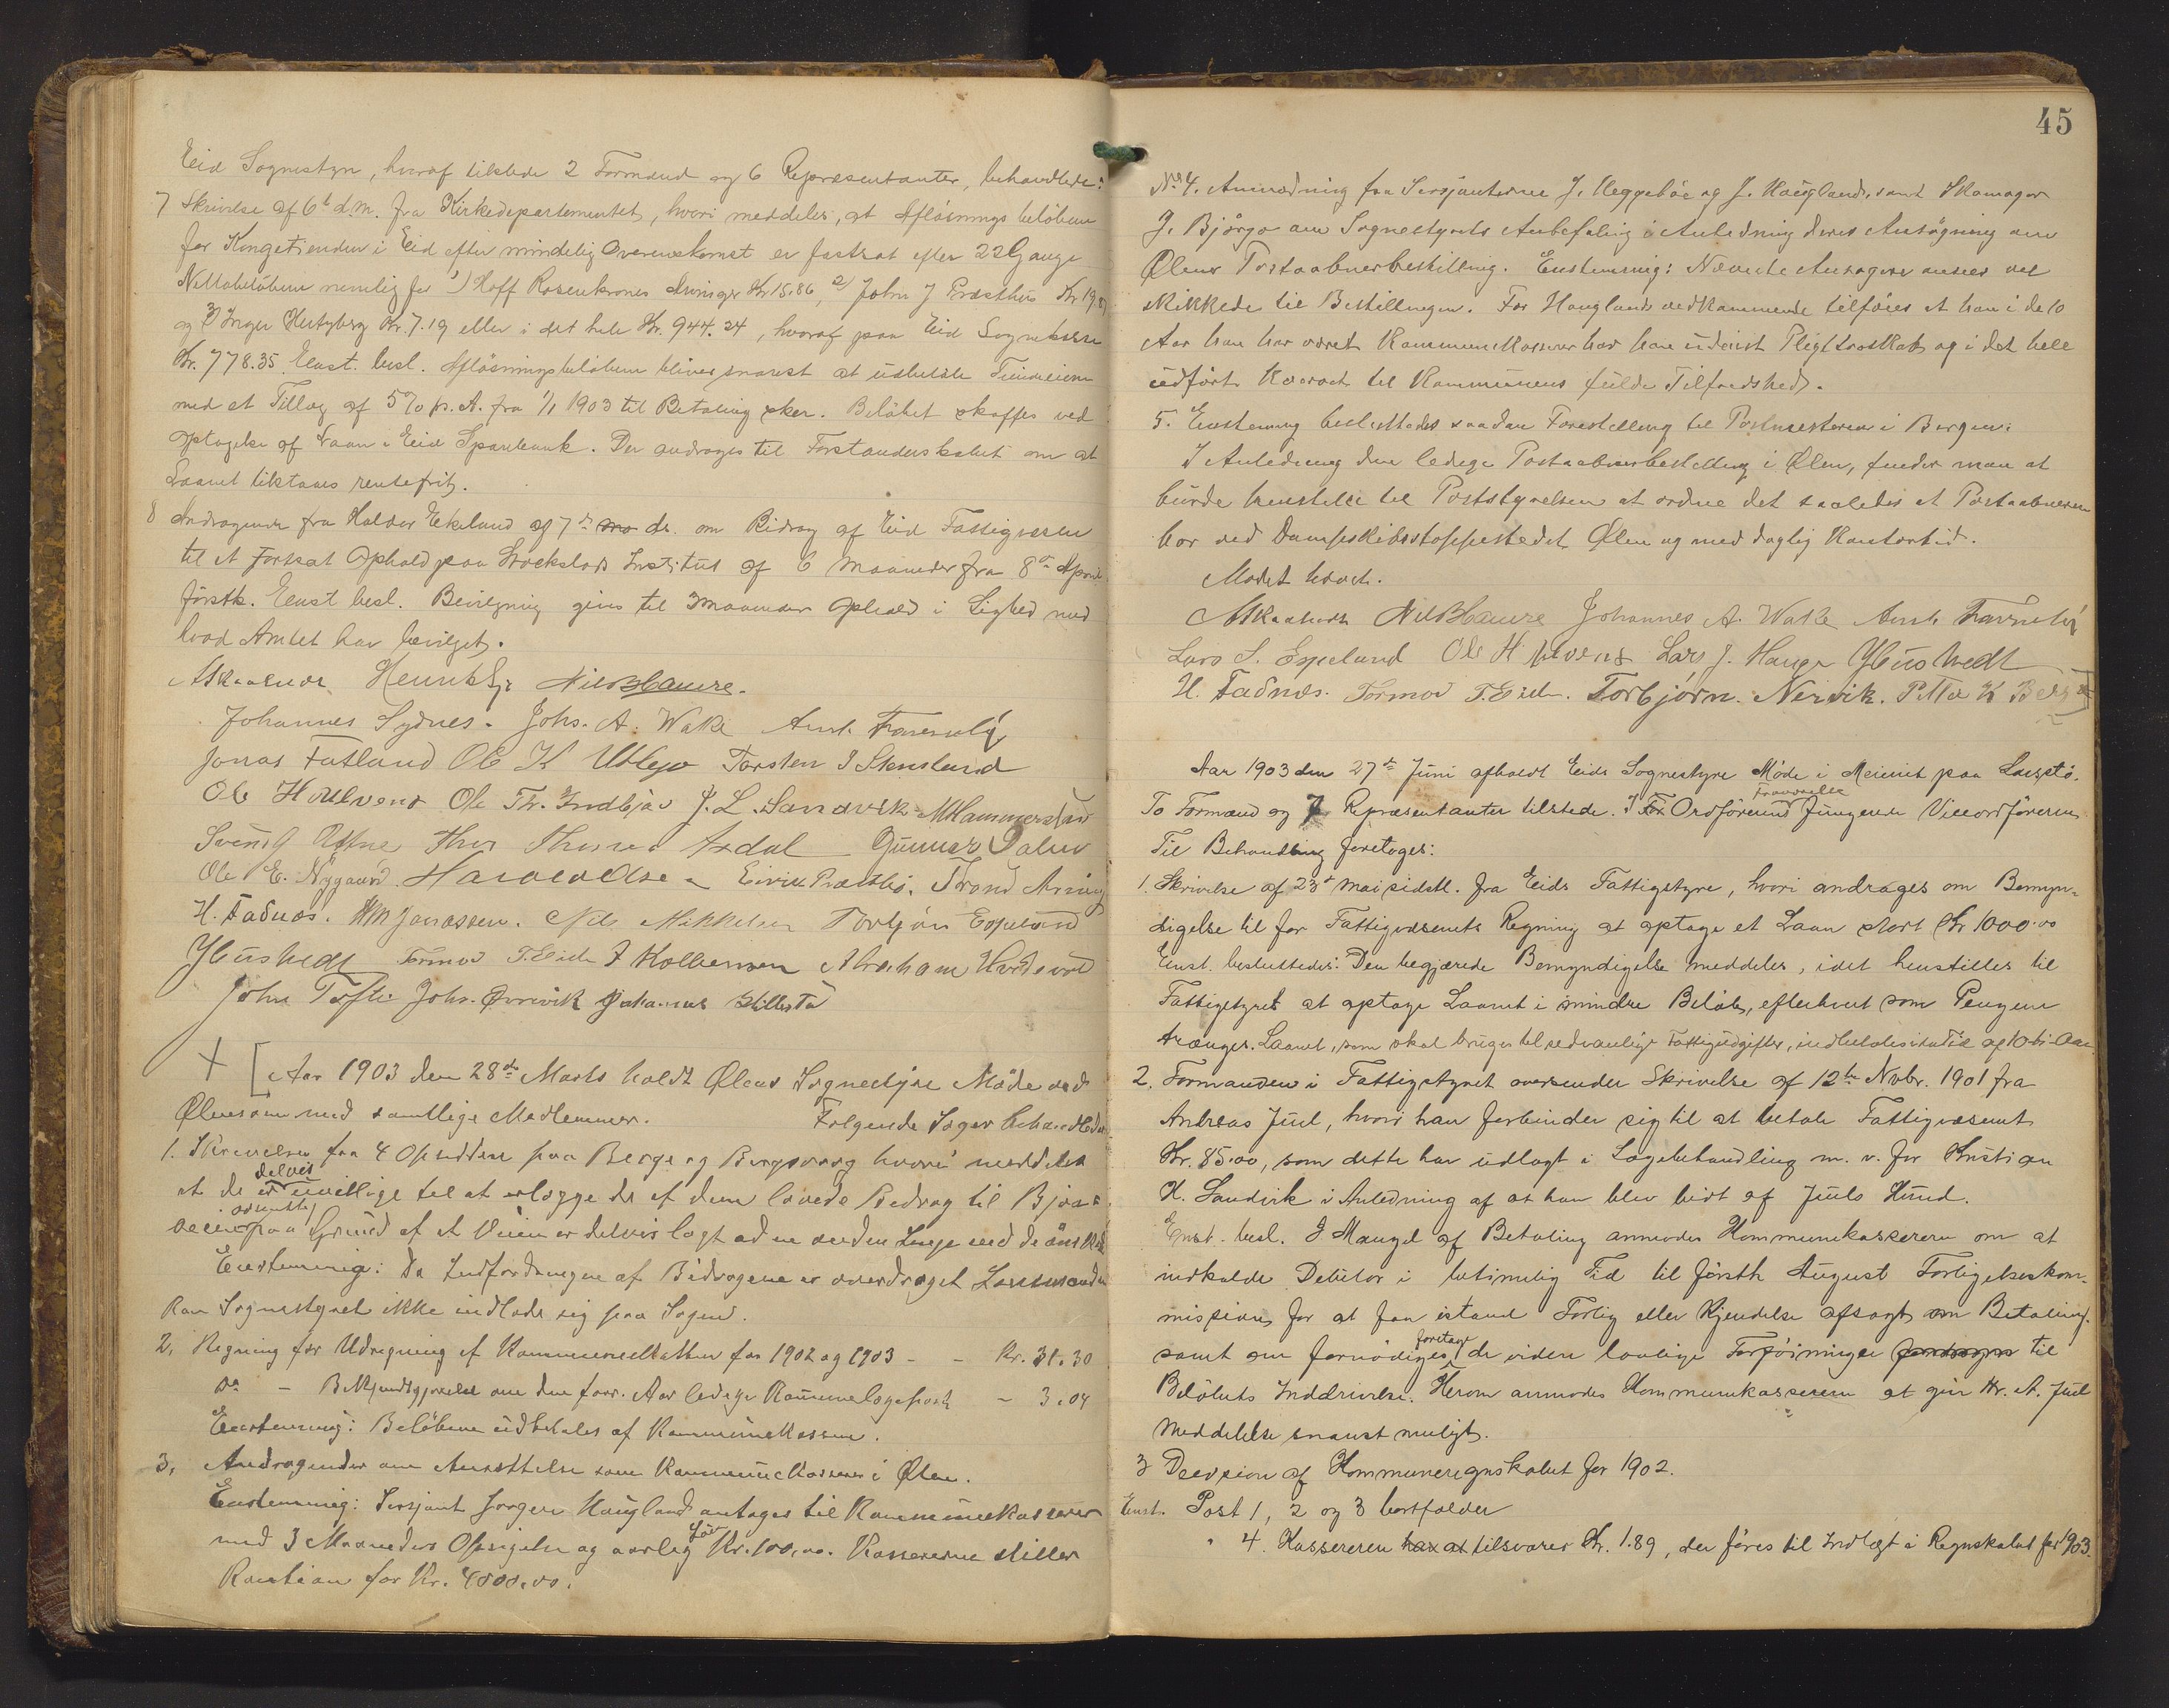 Eid Sognestyre, hvoraf tilstede 2 Formænd og 6 Repræsentanter, behandlede:
7 Skrivelse af 6te d.M. fra Kirkedepartementet, hvori meddeles, at Afløsningsbeløbene
for Kongetienden i Eid efter mindelig Overenskomst er fastsat efter 22 Gange
Nettobeløbene nemlig for 1) Hoff Rosenkrones Arvinger Kr 15.86, 2) John J Præsthus Kr 19
og 3) Inger Hertzberg Kr. 7.19 eller i det hele Kr. 944.24, hvoraf paa Eid Sognekasse
Kr. 778.35. Enst. besl. Afløsningsbeløbene bliver snarest at udbetale Tiendeeierne
med et Tillæg af 5% p.A. fra 1/1 1903 til Betaling sker. Beløbet skaffes ved
Optagelse af Laan i Eid Sparebank. Der andrages til Formandskabet om at
Laanet tilstaaes rentefrit.
8 Andragende fra Halder Ekeland af 7de ds. om Bidrag af Eid Fattigvæsen
til et fortsat Ophold paa Institut af 6 Maaneder fra 8de April
førstk. Enst besl. Bevilgning gives til 3 Maaneders Ophold i Lighed med
hvad Amtet har bevilget.
Henrik Eje Nils Haure.
Johannes Sydnes. Johs. A. Wake Amt.
Jonas Fatland Ole K Utbjo Torsten J Stensland
Ole H Ole Th. Indbjør J. L. Sandvik M Hammersland
Svein Ølfne Thor Thorsen Axdal Gunnar Dalen
Ole E. Nygaard. Eirik Præsthus. Trond
H. Fadnæs. HM Jonassen. Nils Mikkelsen Torbjørn Espeland
J Hustvedt Tormod T. Eide J Kolbensen Abraham
John Tofte Johs. Ørrevik Johannes
+ [Aar 1903 den 28de Marts holdt Ølens Sognestyre Møde ved
Ølensøen med samtlige Medlemmer. Følgende Sager behandledes
1. Skrivelse fra 4 Opsiddere paa Berge og Bergsvaag hvori meddeles
at de er delvis uvillige til at erlægge de af dem lovede Bidrag til Bjoa-
veien paa Grund af at Veien er delvis lagt ad en anden Linje end de ønskede
Enstemmig: Da Indfordringen af Bidragene er overdraget Lensmanden
kan Sognestyret ikke indlade sig paa Sagen.
2. Regning for Udregning af Kommuneskatten for 1902 og 1903 - - Kr. 31.30
do - Bekjendtgjørelse om den forr. Aar ledige Kommunelægepost - 3.04
Enstemmig: Beløbene udbetales af Kommunekassen.
3. Andragender om Ansættelse som Kommunekasserer i Ølen.
Enstemmig: Sersjant Jørgen Haugland antages til Kommunekasserer
med 3 Maaneders Opsigelse og aarlig Løn Kr. 100,00. Kassereren stiller
Kaution for Kr. 4000.00.
45
No 4. Anmodning fra Sersjanterne J. Heggebøe og J. Haugland, samt Skomager
G. Bjørgo om Sognestyrets Anbefaling i Anledning deres Ansøgning om
Ølens Postaabnerbestilling. Enstemmig: Nævnte Ansøgere ansees vel
skikkede til Bestillingen. For Hauglands vedkommende tilføies at han i de 10
Aar han har været Kommunekasserer har han udvist Pligttroskab og i det hele
udført Hvervet til Kommunens fulde Tilfredshed.
5. Enstemmig besluttedes saadan Forestilling til Postmesteren i Bergen:
I Anledning den ledige Postaabnerbestilling i Ølen, finder man at
burde henstille til Poststyrelsen at ordne det saaledes at Postaabneren
bor ved Dampskibsstoppestedet Ølen og med daglig Kontortid.
Mødet hævet.
Nils Haure Johannes A. Wake Amt.
Lars S. Espeland Ole H Lars J. Hauge J Hustvedt
H. Fadnæs. Tormod T. Eide. Torbjørn Nervik. Petter K Berge]
Aar 1903 den 27de Juni afholdt Eids Sognestyre Møde i Meieriet paa
To Formænd og 7 Repræsentanter tilstede. I Ordførerens fraværelse fungerede Viceordføreren
Til Behandling foretoges:
1. Skrivelse af 23de Mai sidstl. fra Eids Fattigstyre, hvori andrages om Bemyn-
digelse til for Fattigvæsenets Regning at optage et Laan stort Kr 1000.00
Enst. besluttedes: Den begjærede Bemyndigelse meddeles, idet henstilles til
Fattigstyret at optage Laanet i mindre Beløb, efterhvert som Pengene
trænges. Laanet, som skal bruges til sedvanlige Fattigudgifter, indbetales i en Tid af 10 ti Aar.
2. Formanden i Fattigstyret oversender Skrivelse af 12te Novbr. 1901 fra
Andreas Juul, hvori han forbinder sig til at betale Fattigvæsenet
Kr. 85.00, som dette har udlagt i Lægebehandling m. v. for Kristian
K. Sandvik i Anledning af at han blev bidt af Juuls Hund.
Enst. besl. I Mangel af Betaling anmodes Kommunekassereren om at
indkalde Debitor i betimelig Tid til førstk August Forligelseskom-
mission, for at faa istand Forlig eller Kjendelse afsagt om Betaling,
samt om fornødiges foretage de videre lovlige Forføininger til
Beløbets Inddrivelse. Herom anmodes Kommunekassereren at give Hr. A. Juul
Meddelelse snarest muligt.
3 Decision af Kommuneregnskabet for 1902.
Enst. Post 1, 2 og 3 bortfalder
" 4. Kassereren har at tilsvarer Kr. 1.89, der føres til Indtægt i Regnskabet for 1903.